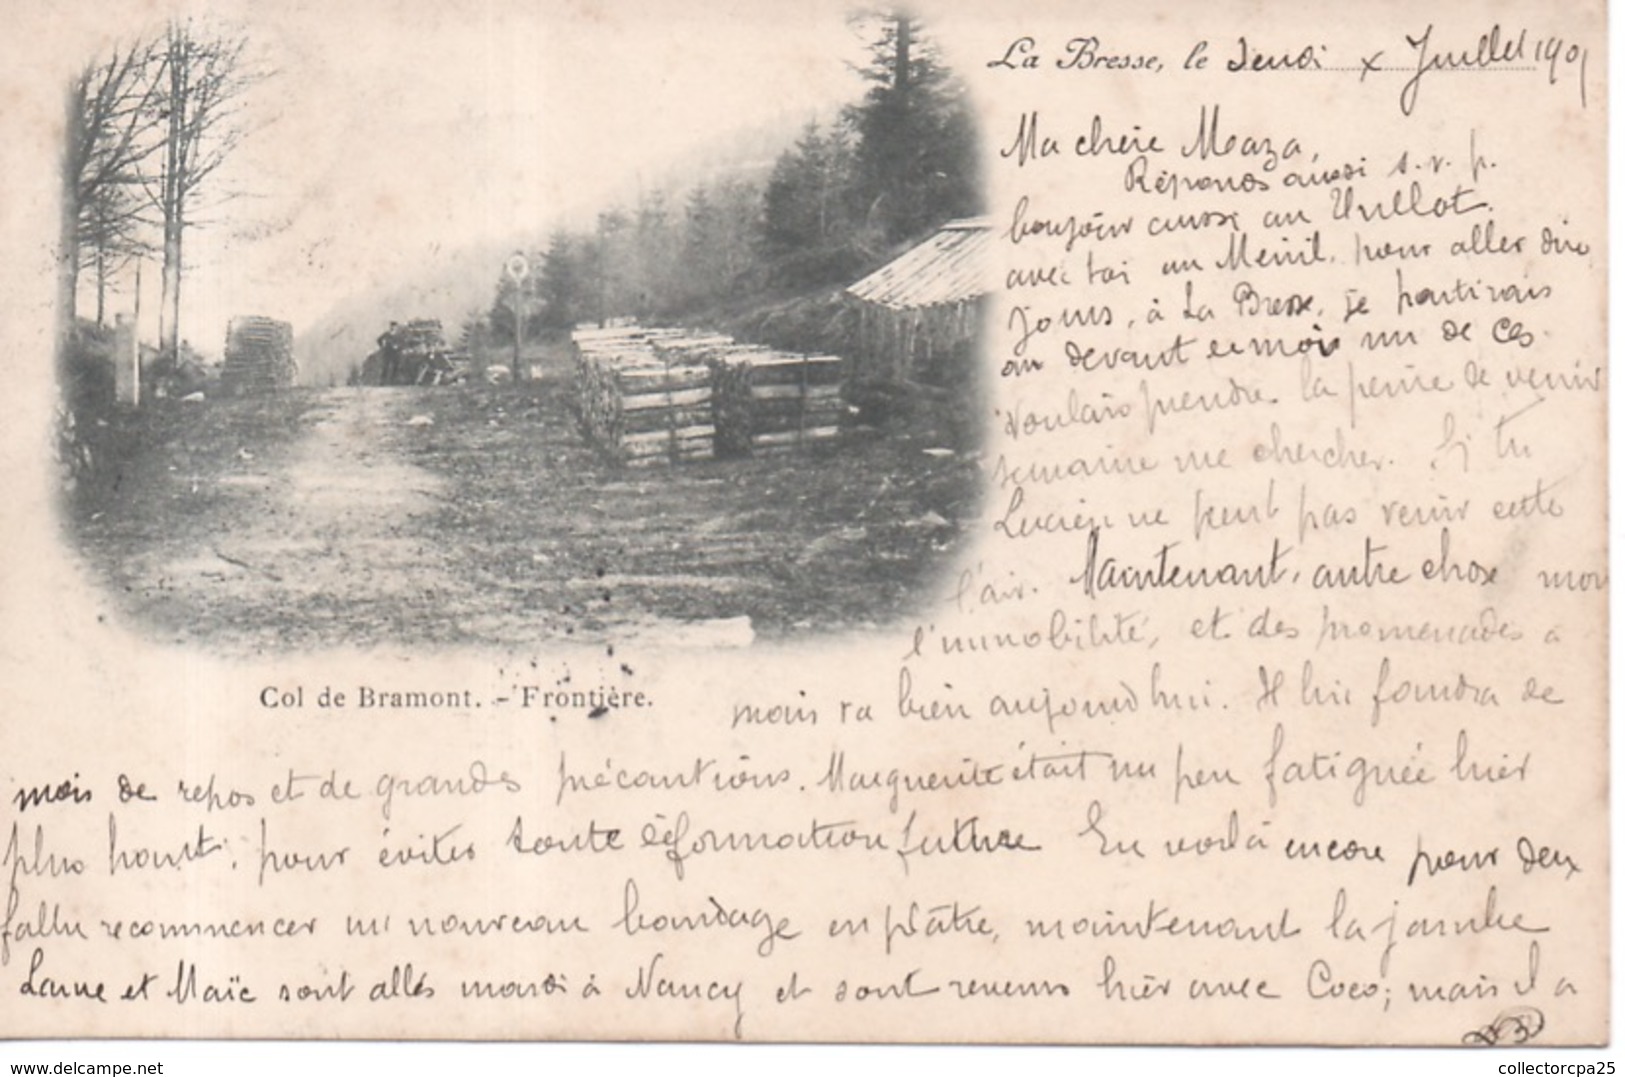 La Bresse, le Jeudi x Juillet 1901
Ma chère Maza,
Réponds aussi s.v.p.
bonjour aussi au Thillot.
avec toi au Ménil, pour aller dire
jours, à La Bresse, je partirais
au devant de moi un de ces
voulais prendre la peine de venir
semaine me chercher. Si tu
Lucien ne peut pas venir cette
l'air. Maintenant, autre chose mon
l'immobilité, et des promenades à
mais va bien aujourd'hui. Il lui faudra de
Col de Bramont. - Frontière.
mois de repos et de grandes précautions. Marguerite était un peu fatiguée hier
plus haut, pour éviter toute déformation future En voilà encore pour deux
fallu recommencer un nouveau bandage en plâtre, maintenant la jambe
et Maïc sont allés mardi à Nancy et sont revenus hier avec Coco; mais il a
www.delcampe.net
collectorcpa25